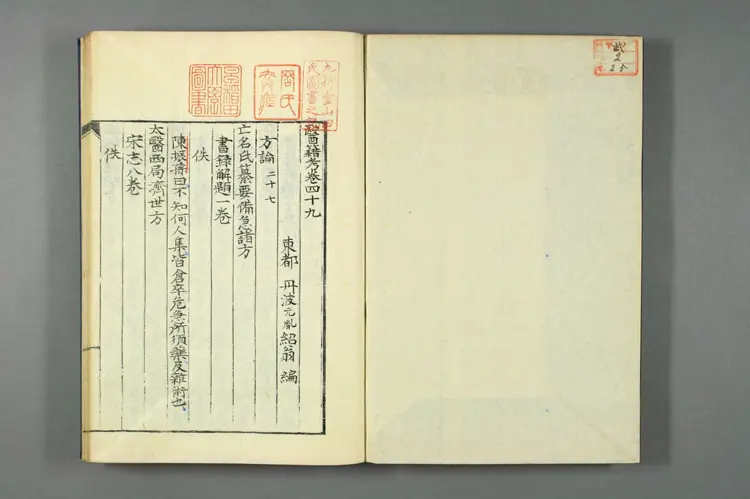 醫籍考卷四十九
東都 丹波元胤紹翁 編
方論二十七
亡名氏纂要備急諸方
書錄解題一卷
佚
陳振孫曰不知何人集皆倉卒危急所須藥及雜術也
太醫西局濟世方
宋志八卷
佚